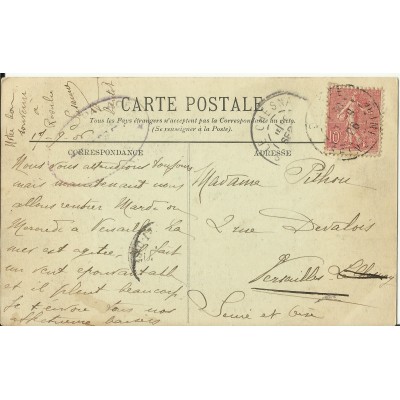 CARTE POSTALE
Tous les Pays étrangers n'acceptent pas la Correspondance au recto.
(Se renseigner à la Poste).
CORRESPONDANCE
ADRESSE
Notre bon
souvenir
à
Rosalie
Nous nous attristons toujours
mais maintenant nous
allons rentrer Mardi ou
Mercredi à Versailles. La
mer est agitée, il fait
un vent épouvantable
et il pleut beaucoup.
Je t'envoie tous nos
affectueux baisers
Madame Pithou
2 rue Devalois
Versailles
Seine et Oise
10